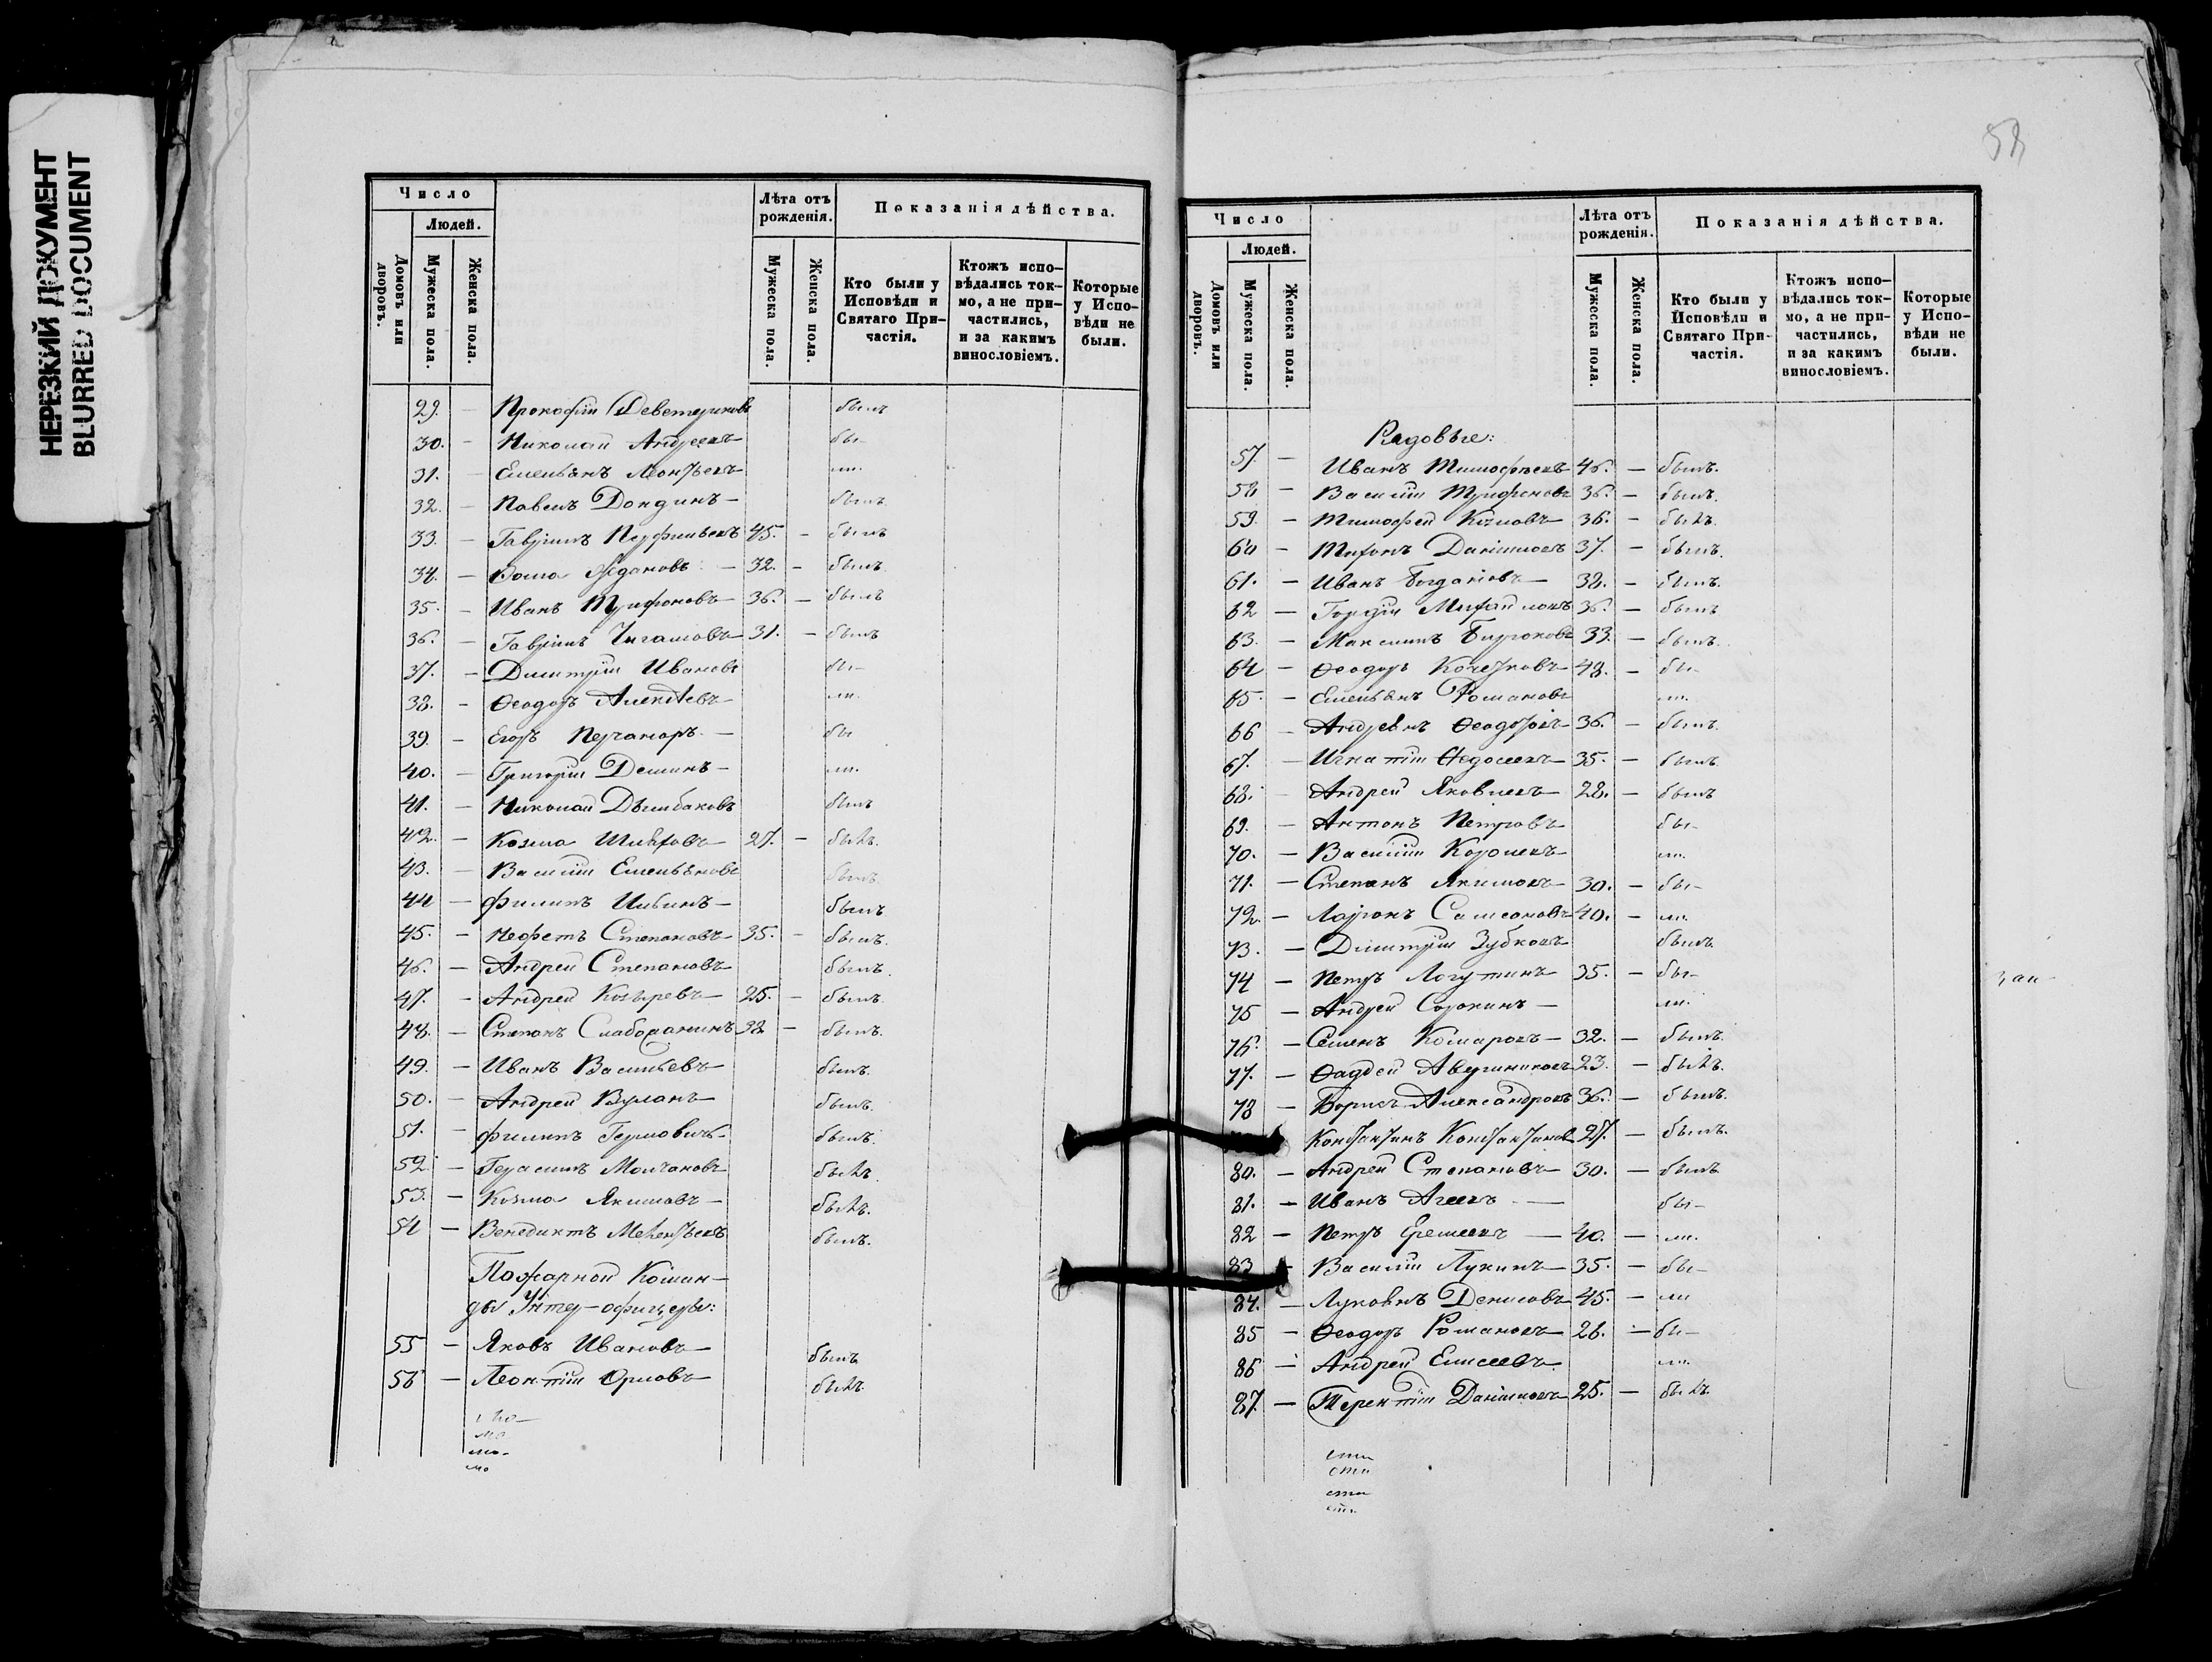 НЕРЕЗКИЙ ДОКУМЕНТ
BLURRED DOCUMENT
Число
Людей.
Домовъ или дворовъ.
Мужеска пола.
Женска пола.
Лѣта отъ рожденія.
Мужеска пола.
Женска пола.
Показанія дѣйства.
Кто были у Исповѣди и Святаго При-частія.
Ктожъ испо-вѣдались ток-мо, а не при-частились, и за какимъ винословіемъ.
Которые у Испо-вѣди не были.
29. — Прокофій былъ
30. — Николай Андреевъ— бы—
31. — Емельянъ Леонтьевъ— ли.
32. — Павелъ Дондинъ— былъ
33. — Гаврiилъ Перфильевъ 45. — былъ
34. — Ѳома Ждановъ — 32. — былъ
35. — Иванъ Трифоновъ— 36. — былъ
36. — Гаврiилъ Чигашовъ— 31. — былъ
37. — Димитрій Ивановъ бы—
38. — Ѳеодоръ ли.
39. — Егоръ — бы
40. — Григорій Деминъ— ли.
41. — Николай былъ
42. — Козма 27. — былъ.
43. — Василій Емельяновъ былъ
44 — Филипъ Ильинъ— былъ
45. — Нефетъ Степановъ— 35. — былъ.
46. — Андрей Степановъ— былъ.
47. — Андрей Козыревъ— 25. — былъ
48. — Степанъ 32 — былъ.
49. — Иванъ Васильевъ— былъ.
50. — Андрей былъ.
51. — Филипъ былъ.
52 — Герасимъ Молчановъ былъ.
53. — Козма Якимовъ— былъ.
54 — Венедиктъ былъ.
Пожарной Коман-
ды Унтер-офицеры:
55 — Яковъ Ивановъ— былъ
56 — Леонтій Орловъ— былъ
58
Число
Людей.
Домовъ или дворовъ.
Мужеска пола.
Женска пола.
Лѣта отъ рожденія.
Мужеска пола.
Женска пола.
Показанія дѣйства.
Кто были у Исповѣди и Святаго При-частія.
Ктожъ испо-вѣдались ток-мо, а не при-частились, и за какимъ винословіемъ.
Которые у Испо-вѣди не были.
Рядовые:
57. — Иванъ Тимофѣевъ 46. — былъ.
58 — Василій Трифоновъ 36. — былъ
59. — Тимофей Козловъ— 36. — былъ.
60 — Данiиловъ 37. — былъ.
61. — Иванъ Богдановъ— 38. — былъ.
62 — Гордѣй Михайловъ 36. — былъ
63. — Максимъ Бирюковъ 33. — былъ.
64 — Ѳеодоръ Кочетковъ— 48. — бы—
65. — Емельянъ Романовъ ли.
66 — Ѳеодоровъ— 36. — былъ.
67. — Игнатій Ѳедосеевъ— 35. — былъ
68. — Андрей Яковлевъ— 28. — былъ
69. — Антонъ Петровъ бы—
70. — Василій Королевъ— ли.
71. — Степанъ Якимовъ— 30. — бы—
72. — Самсоновъ— 40. — ли.
73. — Димитрій Зубковъ— былъ
74 — Петръ Логутинъ— 35. — бы—
75 — Андрей Сорокинъ— ли.
76. — Семенъ Комаровъ— 32. — былъ.
77. — Ѳаддей 23. — былъ.
78 — Борисъ Александровъ 36. — былъ.
Константинъ Константиновъ 27. — былъ.
80. — Андрей Степановъ— 30. — былъ
81. — Иванъ Агеевъ — бы—
82 — Петръ Еремеевъ — 40. — ли.
83 — Василій Лукинъ— 35. — бы—
84. — Денисовъ— 45. — ли
85 — Ѳеодоръ Романовъ— 26. — бы—
86 — Андрей Елисеевъ ли.
87. — Терентій Данiиловъ— 25. — былъ